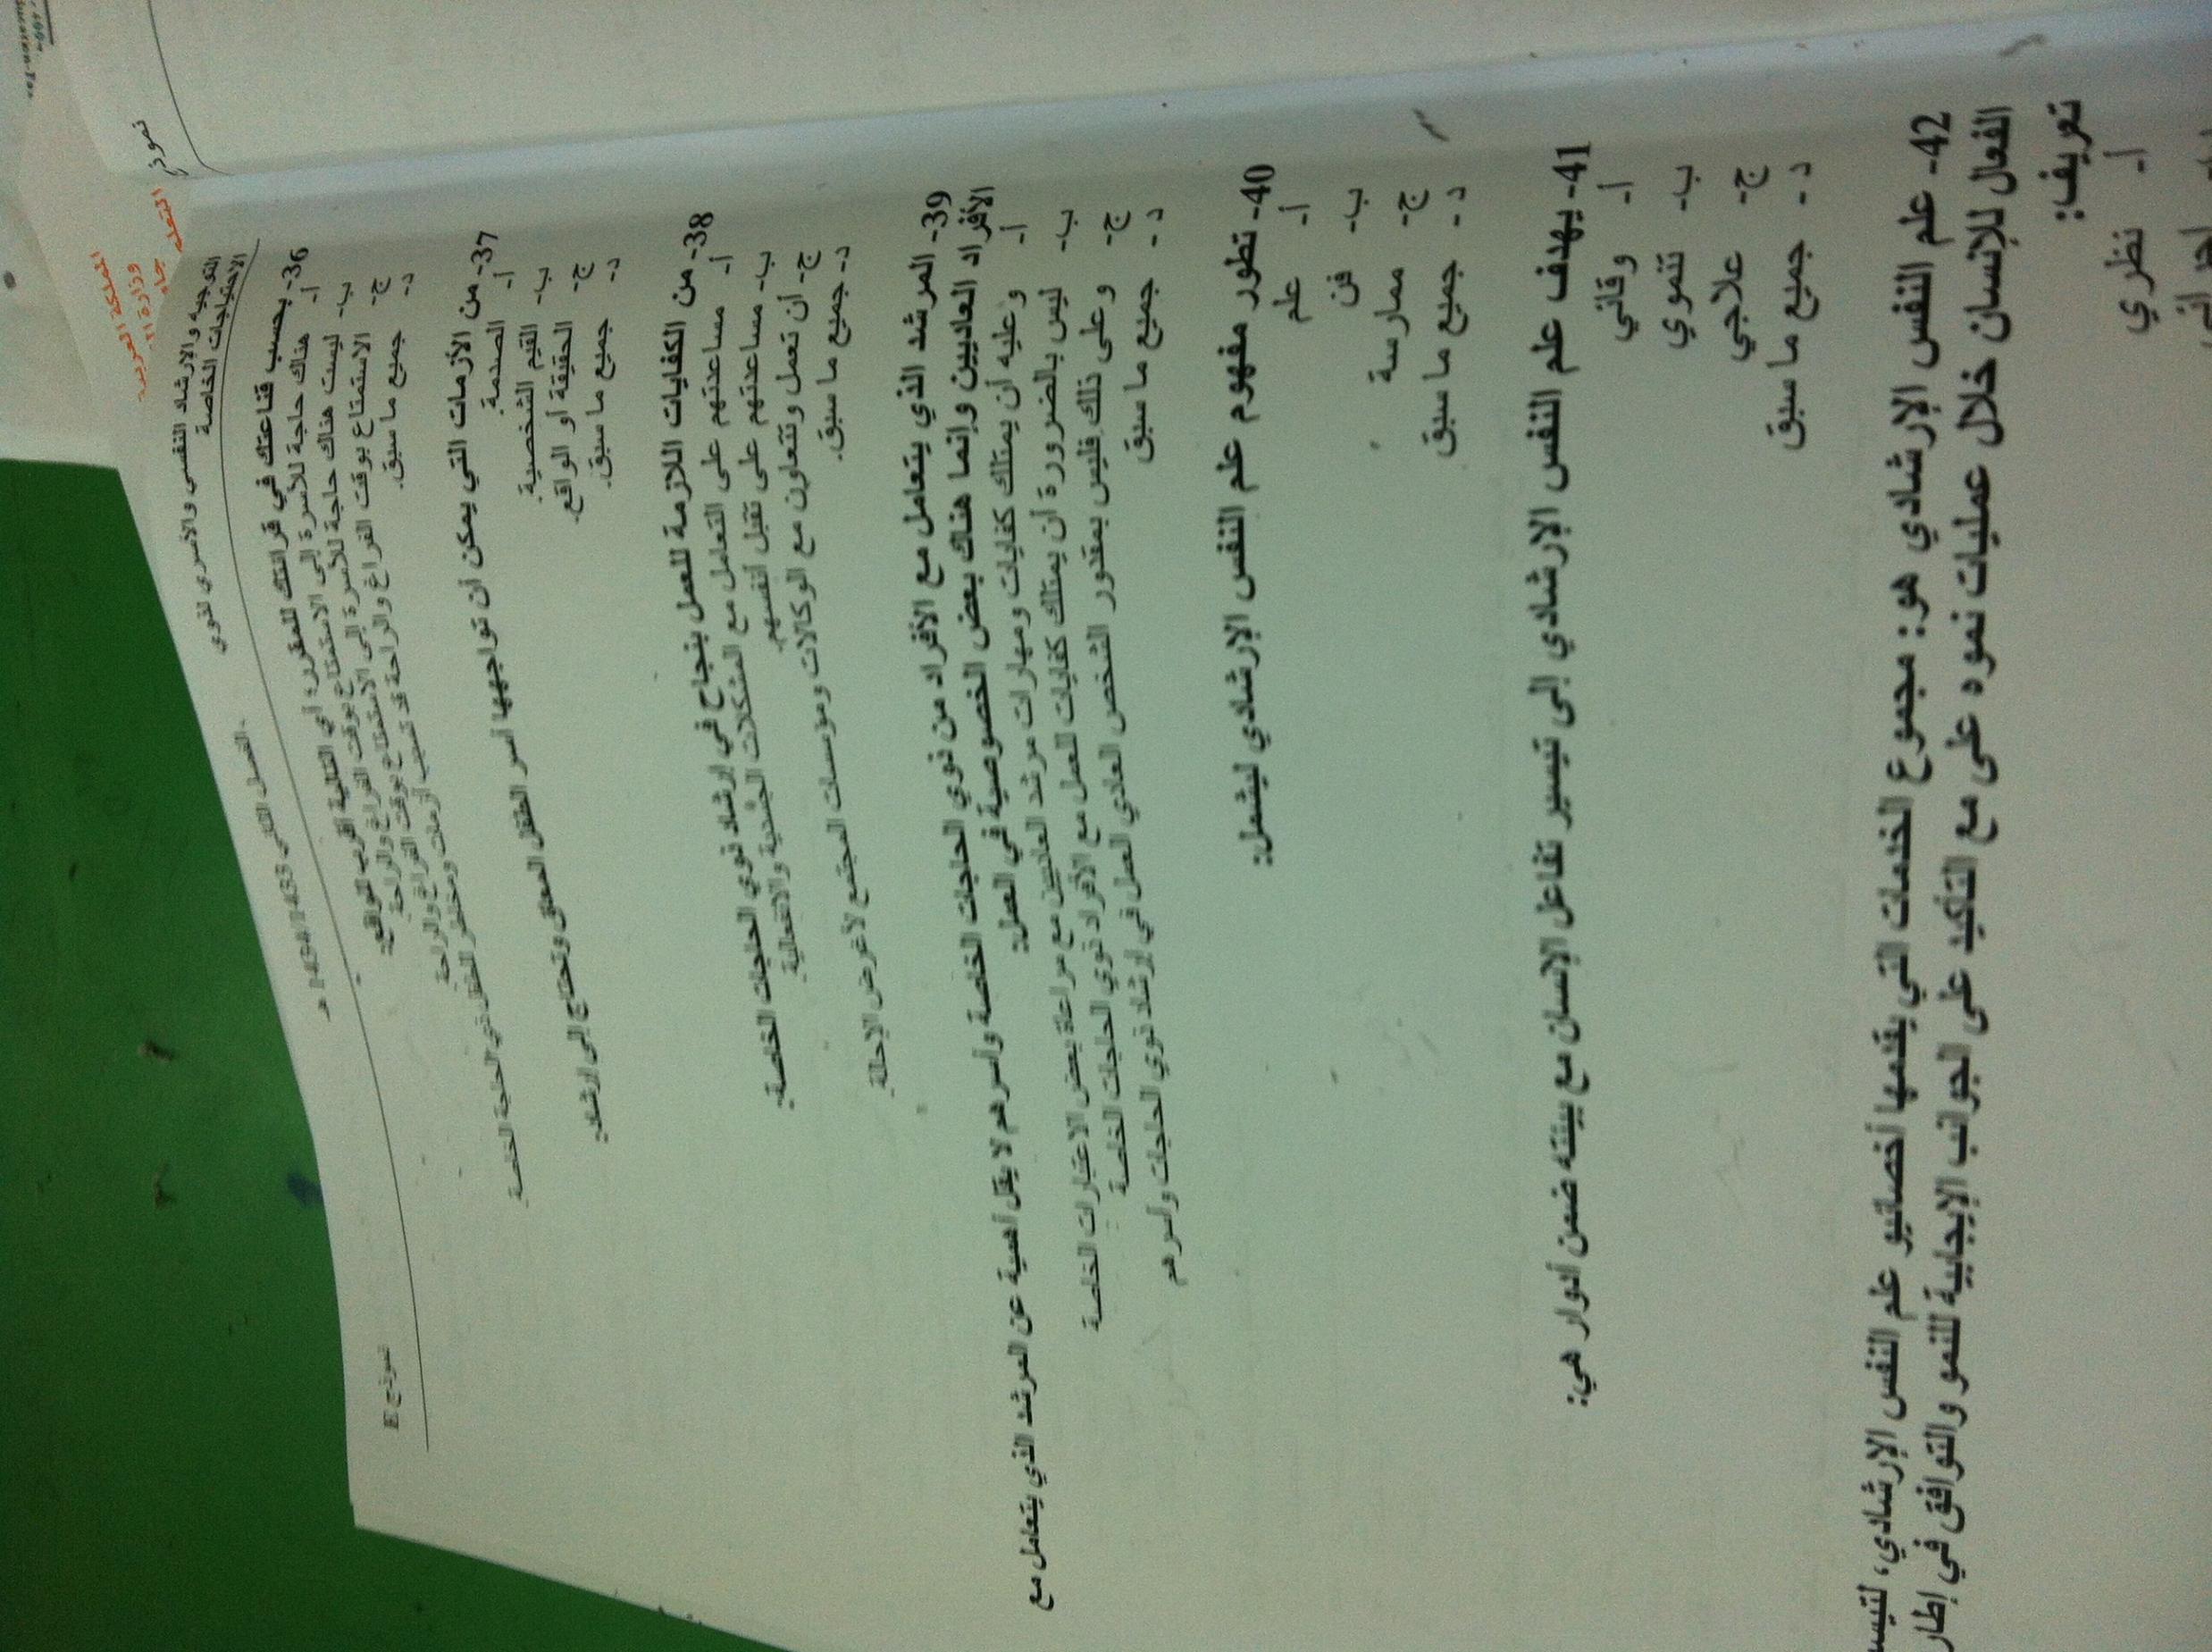 المملكة العربية
وزارة ال
التعليم
نموذج
التوجيه والإرشاد النفسي والأسري لذوي
الاحتياجات الخاصة
الفصل الثاني 1434/1433 هـ
نموذج E
36- بحسب قناعتك في قراءتك للمقرر، أي التالية أقرب للواقع:
أ- هناك حاجة للأسرة إلى الاستمتاع بوقت الفراغ والراحة.
ب- ليست هناك حاجة للأسرة إلى الاستمتاع بوقت الفراغ والراحة
ج- الاستمتاع بوقت الفراغ والراحة قد تسبب أزمات ومخاطر للطفل ذي الحاجة الخاصة.
د- جميع ما سبق.
37- من الأزمات التي يمكن أن تواجهها أسر الطفل المعاق وتحتاج إلى إرشاد:
أ- الصدمة.
ب- القيم الشخصية.
ج- الحقيقة أو الواقع.
د- جميع ما سبق.
38- من الكفايات اللازمة للعمل بنجاح في إرشاد ذوي الحاجات الخاصة:
أ- مساعدتهم على التعامل مع المشكلات الجسدية والانفعالية.
ب- مساعدتهم على تقبل أنفسهم.
ج- أن تعمل وتتعاون مع الوكالات ومؤسسات المجتمع لأغراض الإحالة.
د- جميع ما سبق.
39- المرشد الذي يتعامل مع الأفراد من ذوي الحاجات الخاصة وأسرهم لا يقل أهمية عن المرشد الذي يتعامل مع
الأفراد العاديين وإنما هناك بعض الخصوصية في العمل:
أ- وعليه أن يمتلك كفايات ومهارات مرشد العاديين مع مراعاة بعض الاعتبارات الخاصة
ب- ليس بالضرورة أن يمتلك كفايات للعمل مع الأفراد ذوي الحاجات الخاصة
ج- وعلى ذلك فليس بمقدور الشخص العادي العمل في إرشاد ذوي الحاجات وأسرهم
د- جميع ما سبق
40- تطور مفهوم علم النفس الإرشادي ليشمل:
أ- علم
ب- فن
ج- ممارسة
د- جميع ما سبق
41- يهدف علم النفس الإرشادي إلى تيسير تفاعل الإنسان مع بيئته ضمن أدوار هي:
أ- وقائي
ب- تنموي
ج- علاجي
د- جميع ما سبق
42- علم النفس الإرشادي هو: مجموع الخدمات التي يقدمها أخصائيو علم النفس الإرشادي، لتيسير
الفعال للإنسان خلال عمليات نموه على مع التأكيد على الجوانب الإيجابية للنمو والتوافق في إطار
تعريف:
أ- نظري